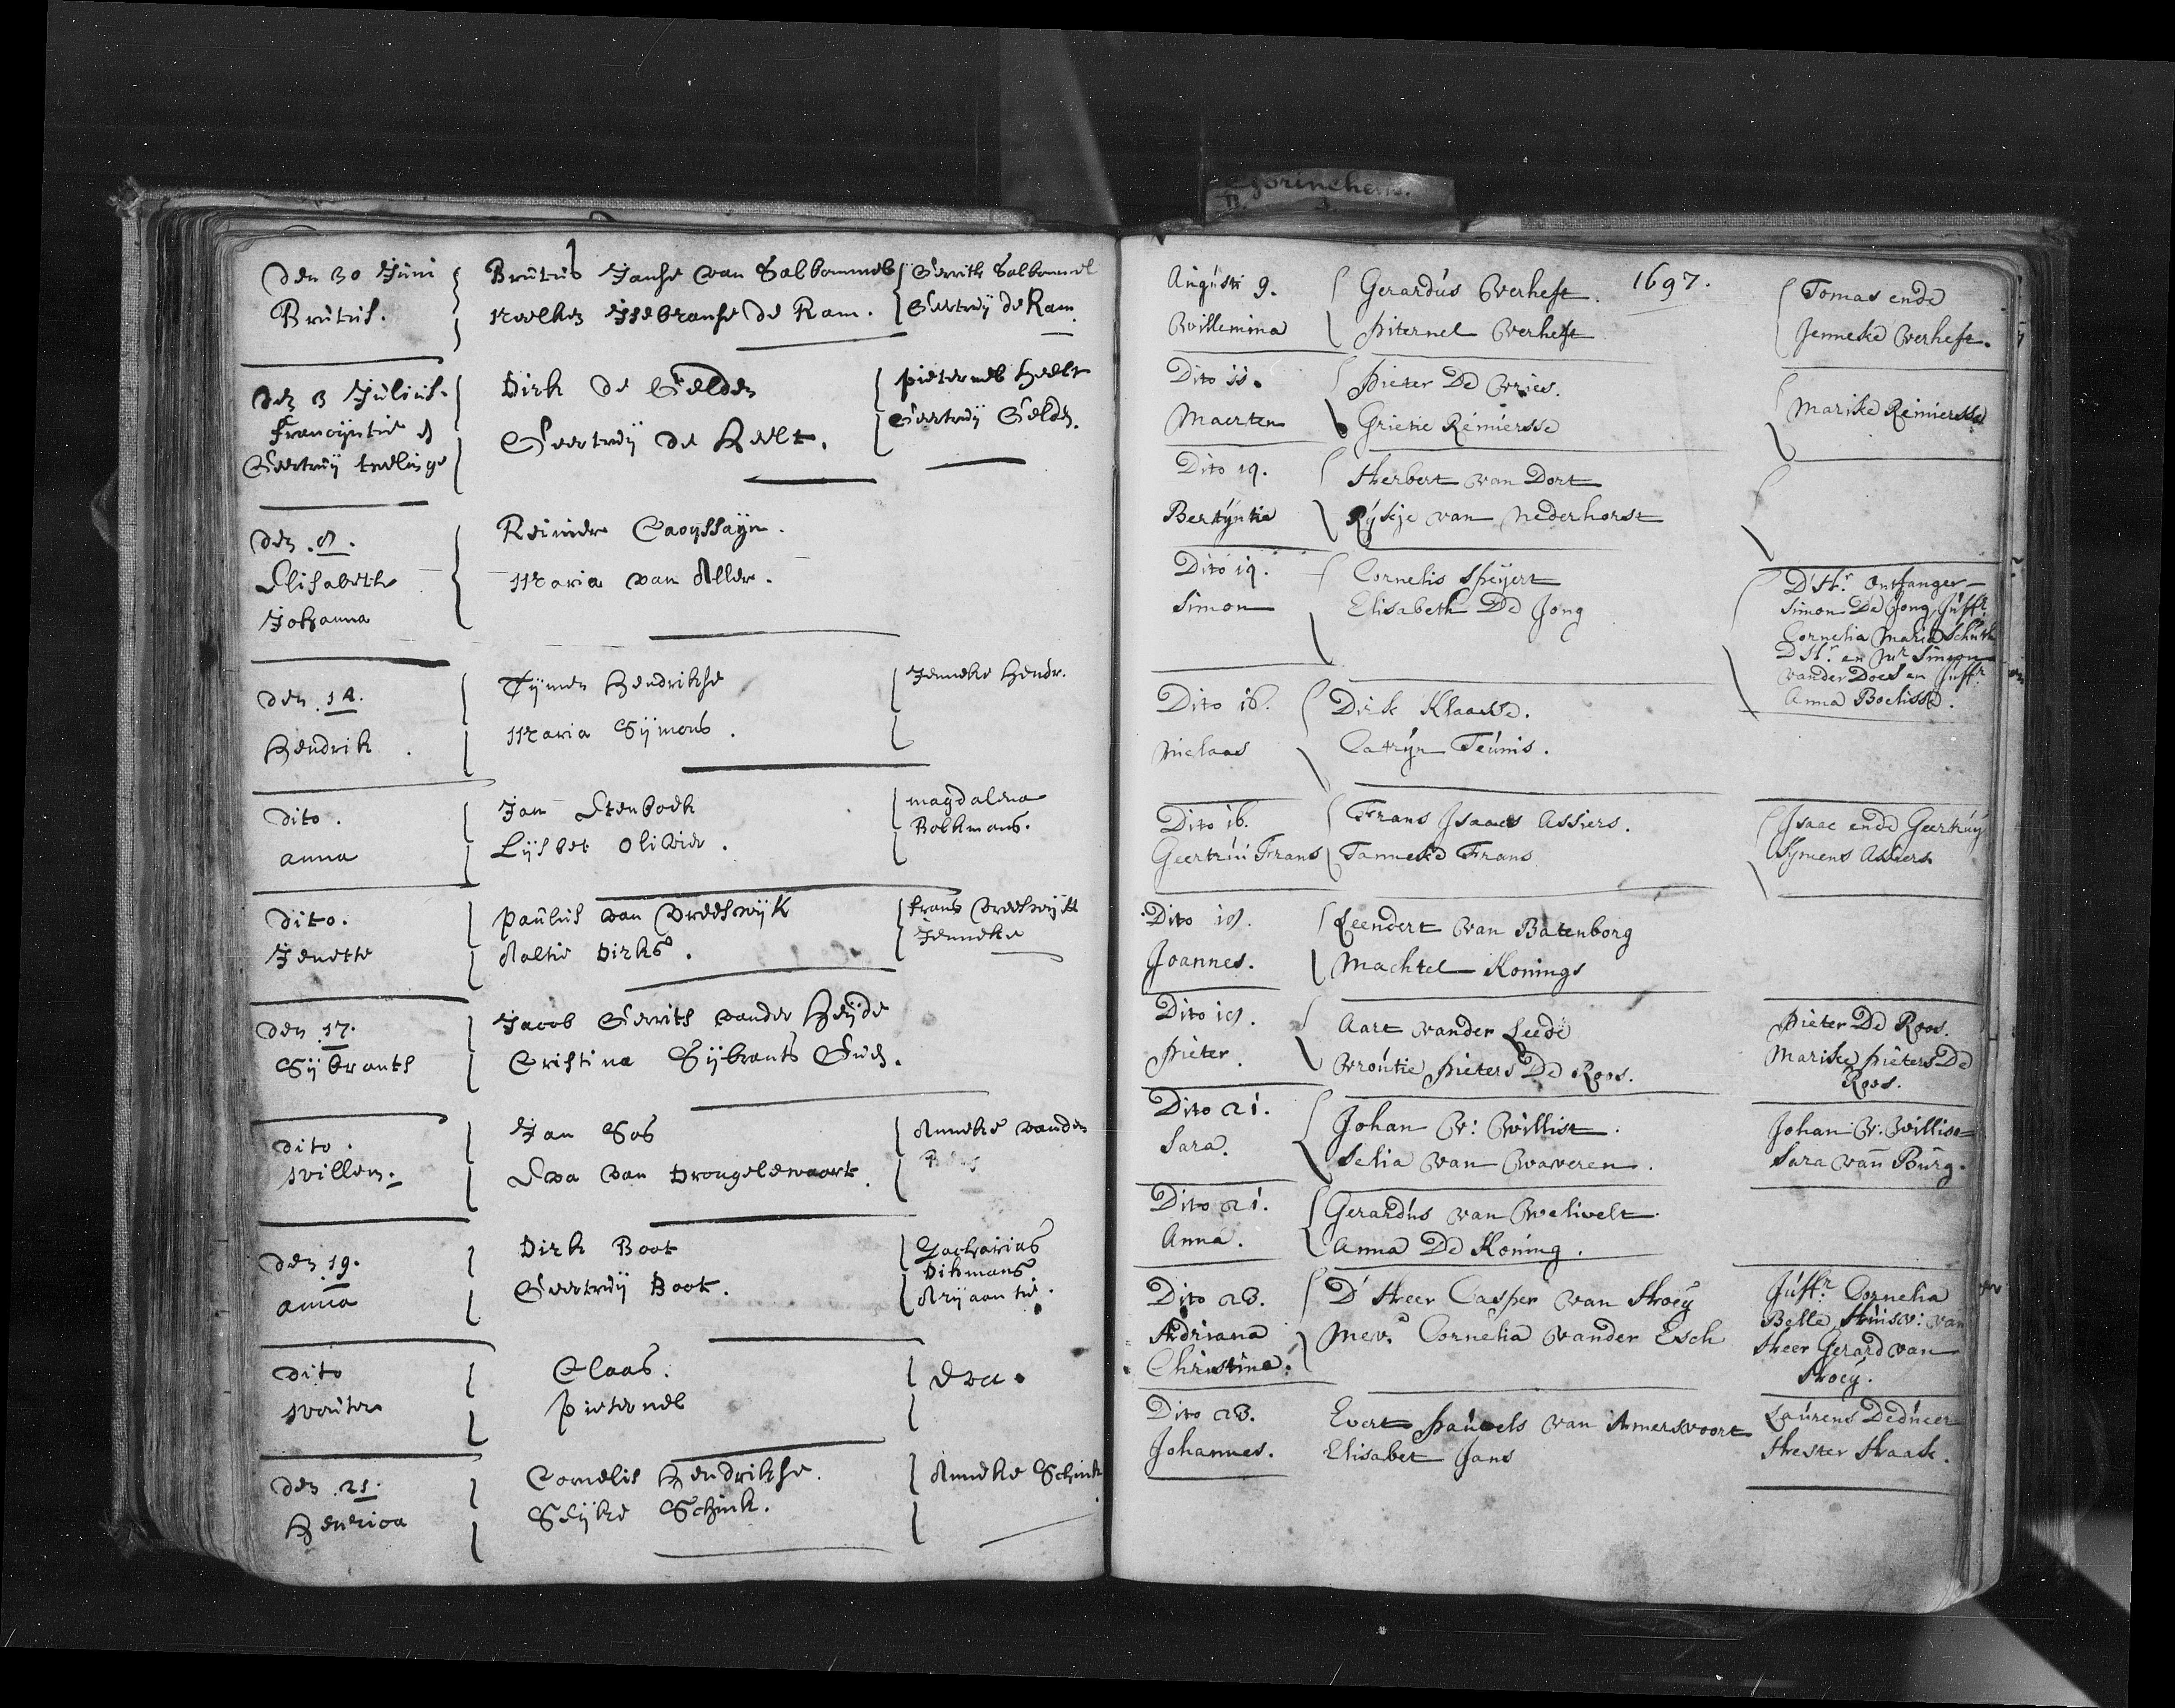 Gorinchem.
den 30 Juni Brutus Janse van Salbommel Gerrith Salbommel
Brutus. Neelken Jsebranse de Ram. Geertruij de Ram
den 3 Julius. Dirk de Gelder pieternel Heelt
francijntie en Geertruij de Heelt. Geertruij Gelder.
Geertruij tweelinge
den 8. Reinier
Elisabeth Maria van Aller.
Johanna
den 14. Tijmen Hendrikse Jenneke Hendr.
Hendrik Maria Sijmons.
dito. Jan Steenboek magdalena
anna Lijsbet Olivier. Bolkmans.
dito. paulus van Vreeswijk frans Vreeswijk
Jenette Aeltie Dirks. Jenneke
den 17. Jacob Gerrits vander Heijde
Sijbrants Cristina Sijbrants
dito. Jan Vos Anneke vanden
willem. Eva van Drongelewaart.
den 19. Dirk Boot Zacharias
anna Geertruij Boot. Dikmans.
Arijaantie.
dito Claas. Eva.
wouter pieternel
den 21. Cornelis Hendrikse. Anneke Schink
Henrica Schink.
1697.
Augusti 9. Gerardus Verheft. Tomas ende
Willemina Piternel Verheft Jenneke Verheft.
Dito 11. Pieter De Vries. Marike Reiniersse
Maerten Grietie Reiniersse
Dito 14. Herbert van Dort
Bertyntie Rykje van Nederhorst
Dito 14. Cornelis Speijert D'Hr. Ontfanger
Simon Elisabeth De Jong Simon De Jong, Juffr.
Cornelia Maria
D'Hr. en Mr. Simon
vander Does en Juffr.
Anna Boelisse.
Dito 16. Dirk Klaasse.
Niclaas Catryn Teunis.
Dito 16. Frans Isaacs Assiers. Isaac ende Geertruij
Geertrui Frans Tanneke Frans Symens Assiers
Dito 18. Leendert van Batenborg
Joannes. Machtel Konings
Dito 18. Aart vander Leede Pieter De Roos.
Pieter. Wroutie Pieters De Roos. Marike Pieters De
Roos.
Dito 21. Johan V: Willist. Johan V. Willis
Sara. Selia van Waveren. Sara van Burg.
Dito 21. Gerardus van Welivelt.
Anna. Anna De Koning.
Dito 23. D'Heer Casper van Hroey Juffr. Cornelia
Adriana Mev. Cornelia vander Esch Belle Huisv: van
Christina. Heer Gerard van
Hroey.
Dito 23. Evert Pauwels van Amersvoort Laurens
Johannes. Elisabet Jans Hester Haack.